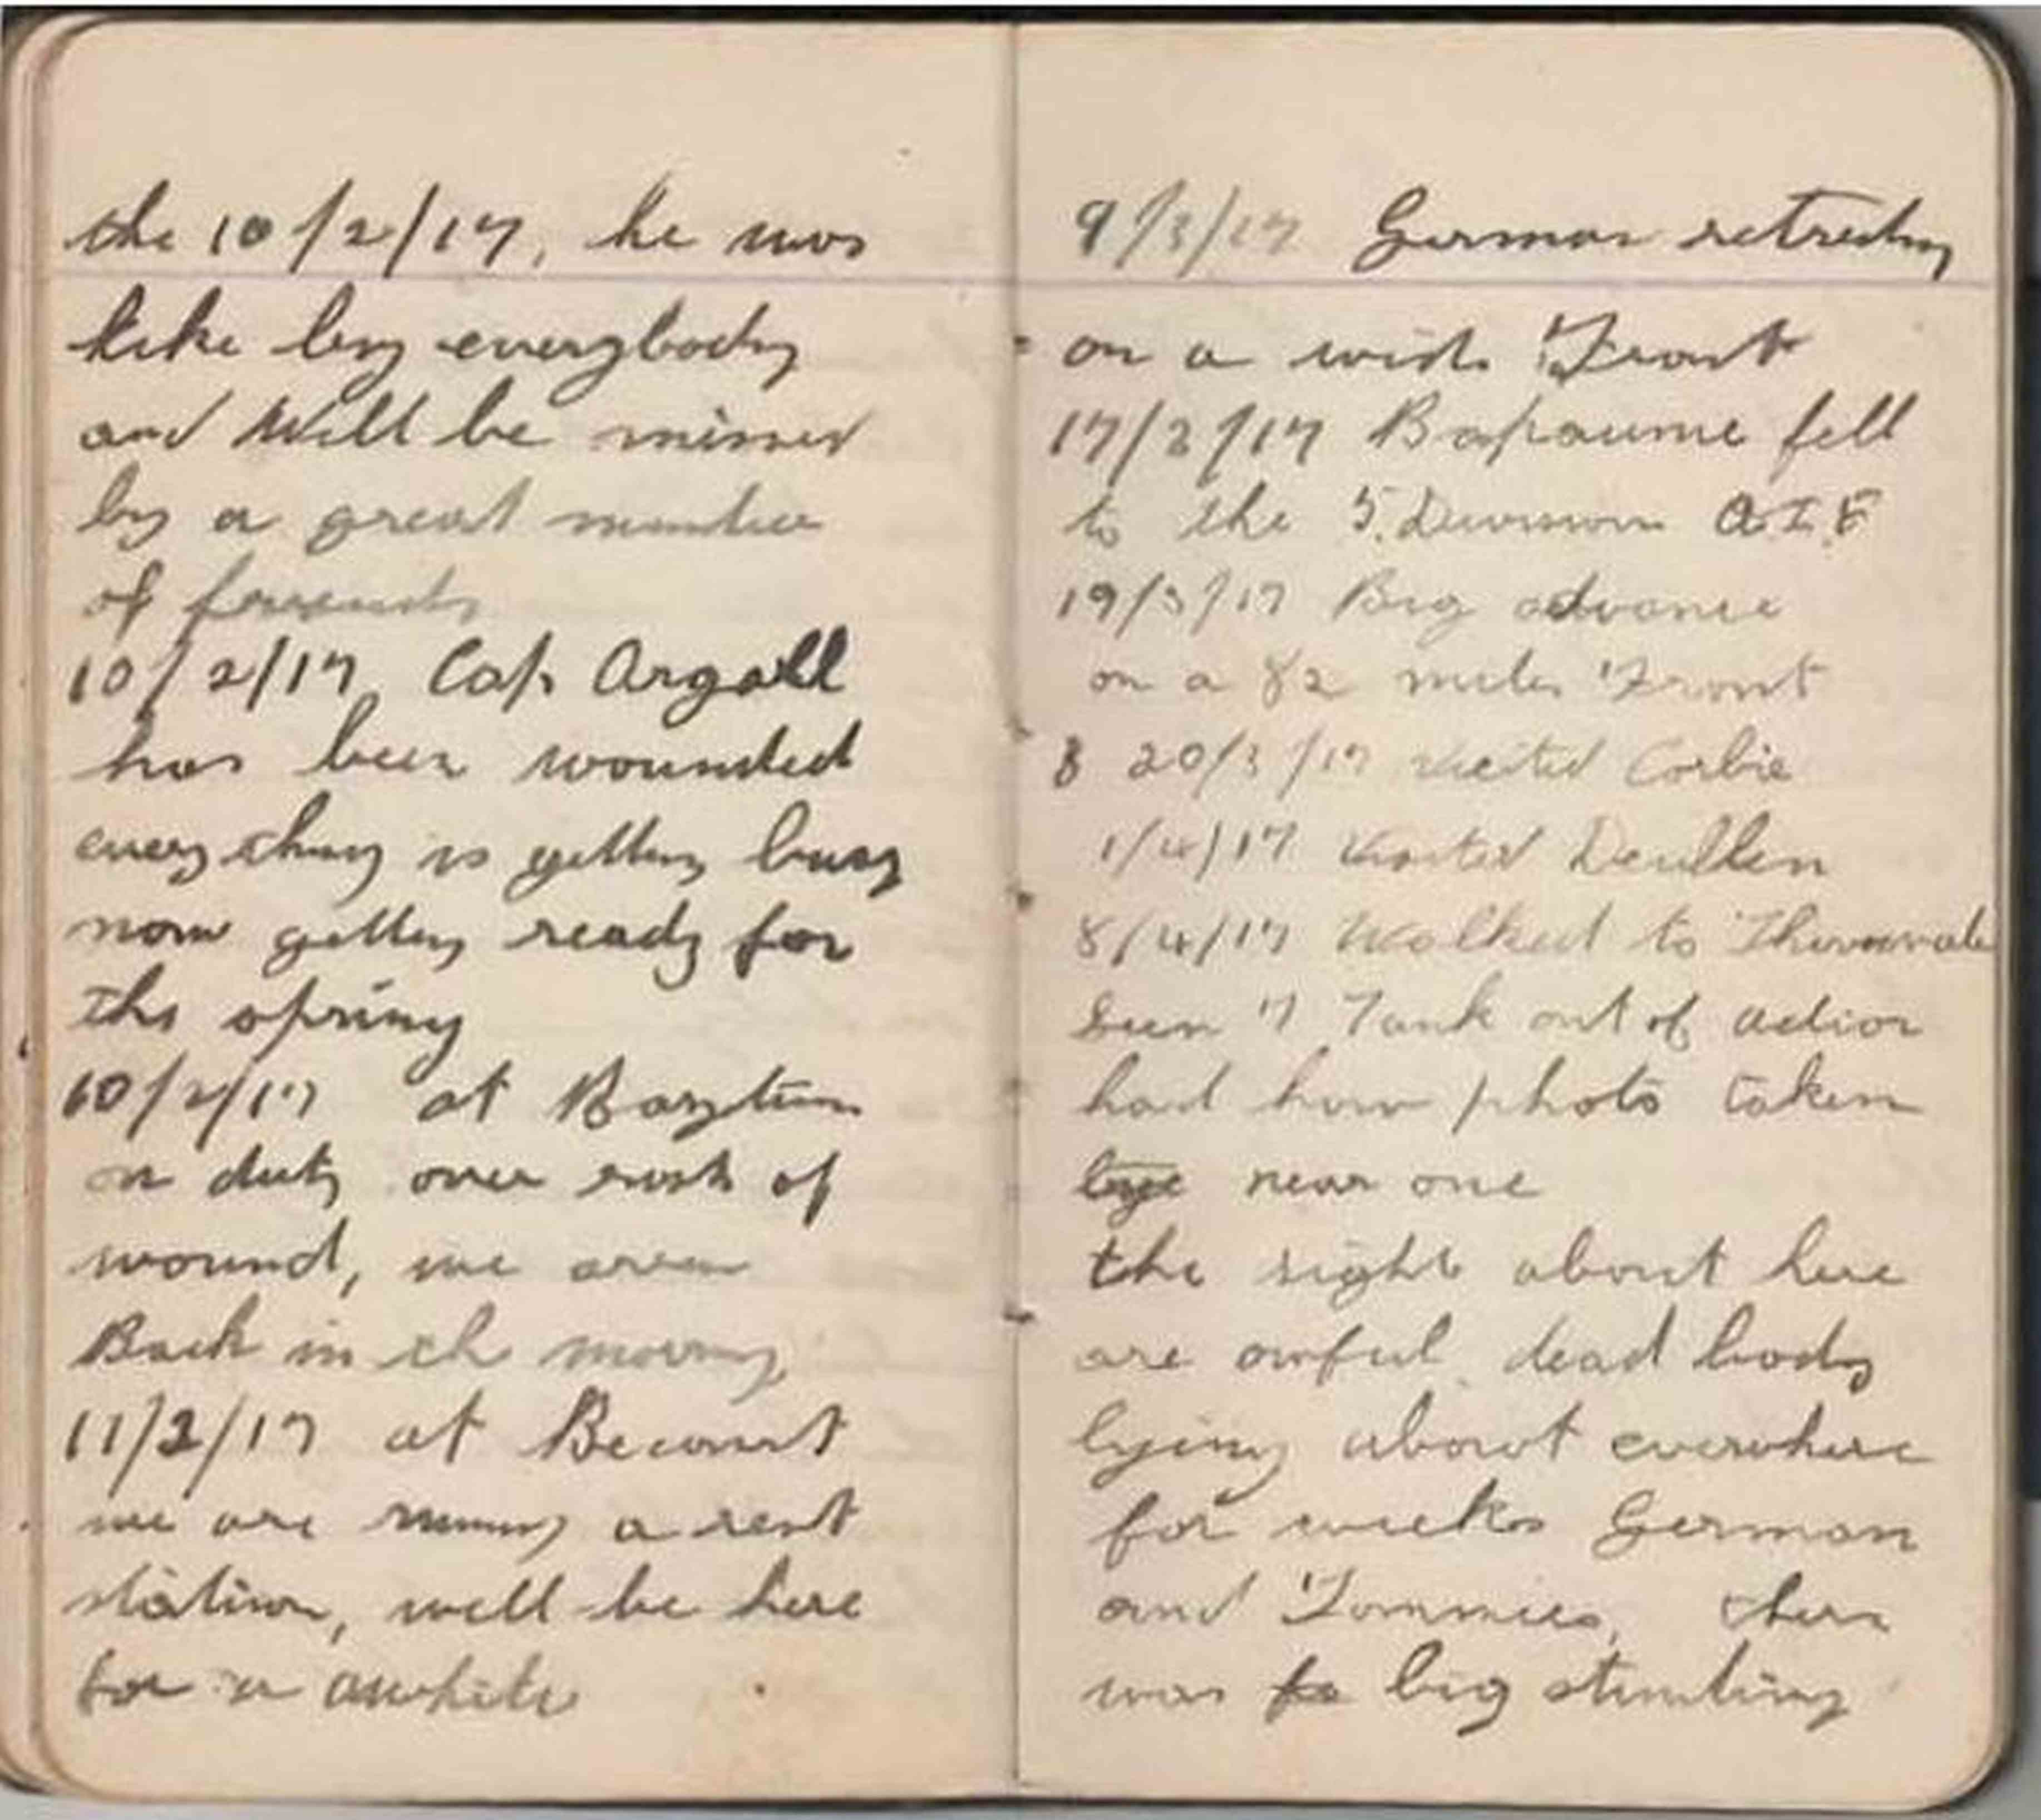 the 10/2/17, he was
like by everybody
and Will be missed
by a great number
of
10/2/17 Cap Argall
has been wounded
every thing is getting busy
now getting ready for
the spring
10/2/17 at Bazyten
on duty over rush of
wound, we
Back in th morning
11/2/17 at Becourt
we are running a rest
station, will be here
for a awhile
9/3/17 German retreating
on a wide Front
17/3/17 Bapaume fell
to the 5. Division A.I.F
19/3/17 Big advance
on a 82 miles Front
20/3/17 visited Corbie
1/4/17 visited Deullen
8/4/17 Walked to
Seen 7 Tank out of action
had photo taken
near one
the sight about here
are awful dead body
lying about everwhere
for weeks German
and Tommies, ther
was big